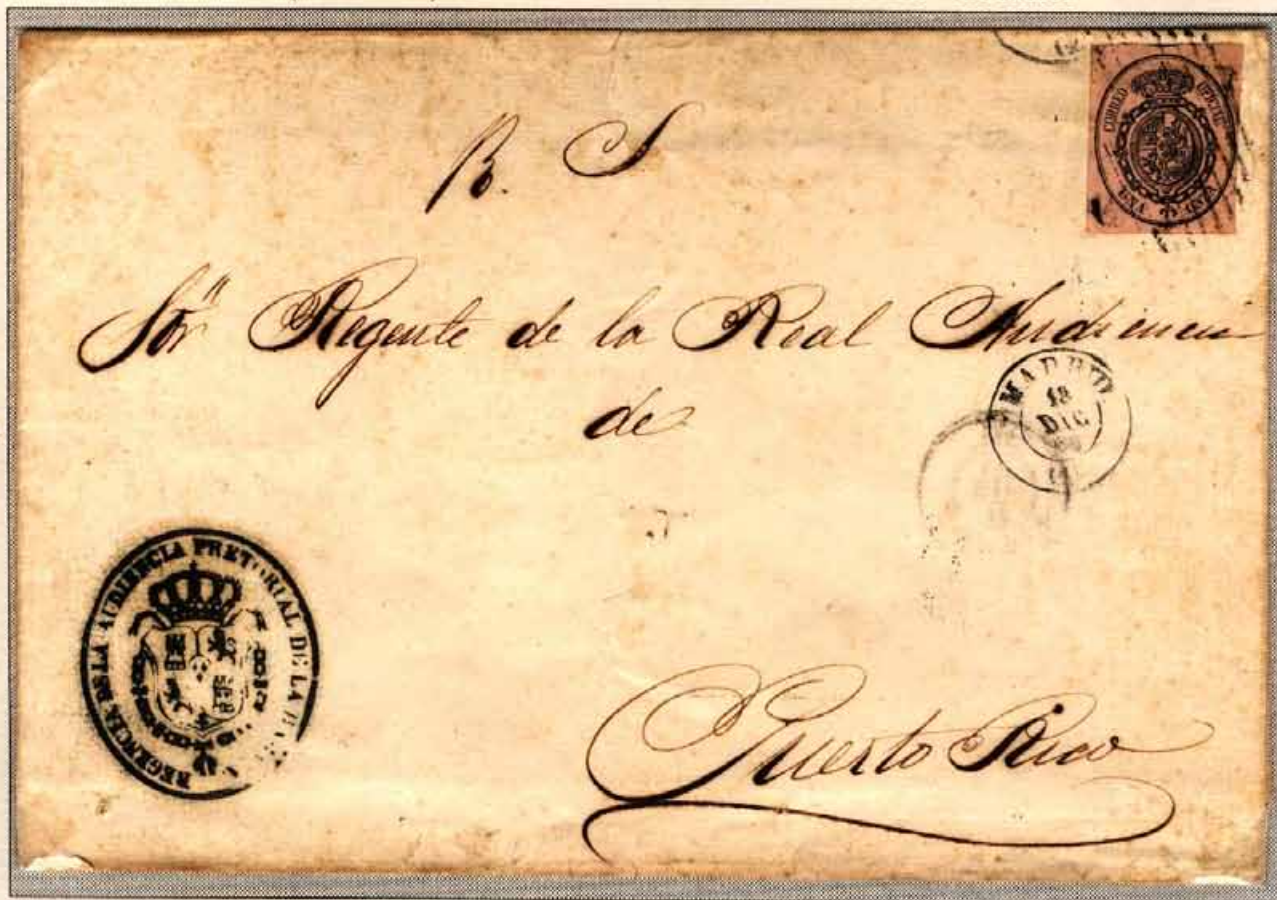 CORREO OFICIAL
UNA ONZA
R. S
Sor Regente de la Real Audiencia
de
MADRID
18
DIC
REGENCIA DE LA AUDIENCIA PRETORIAL DE LA
Puerto Rico